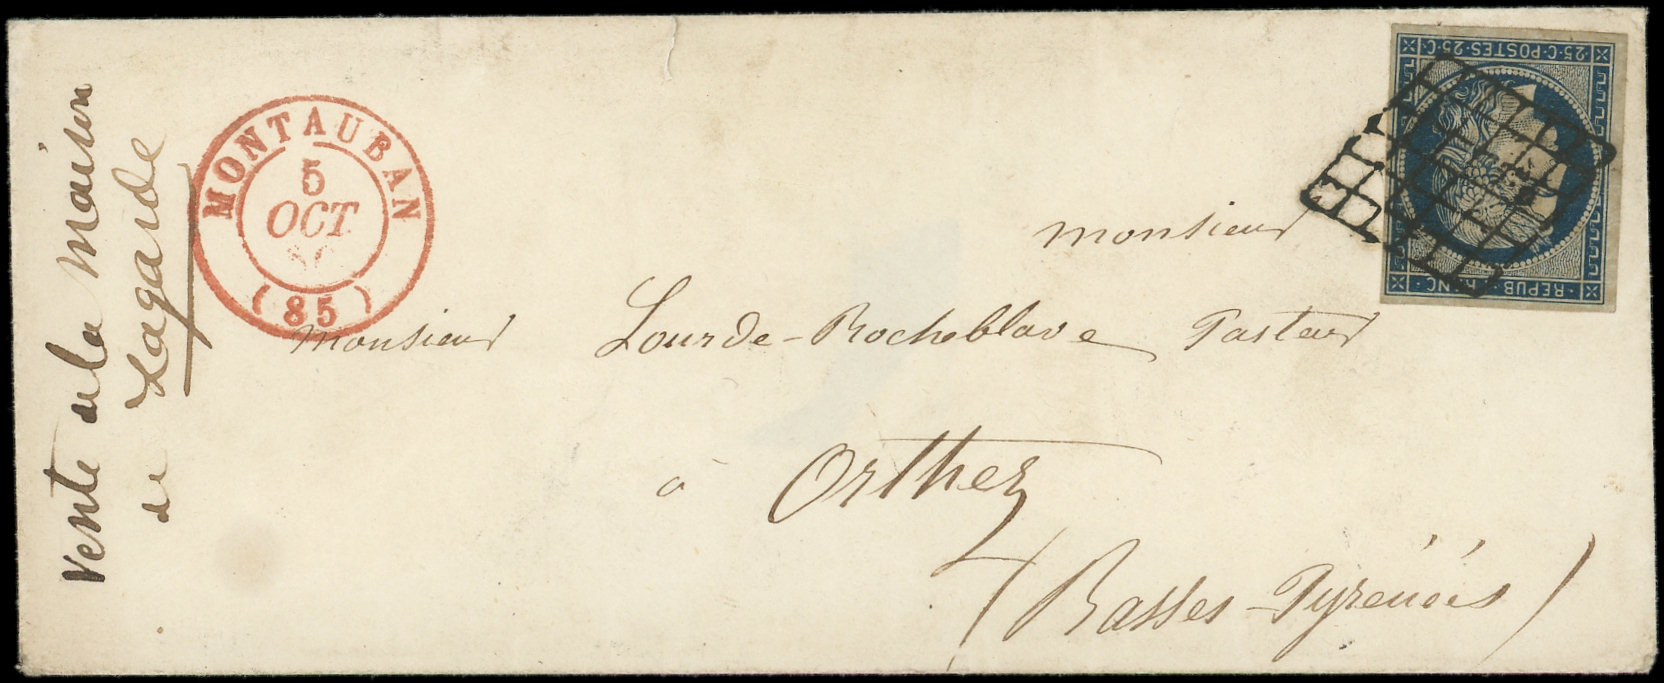 vente de la maison
de Lagarde
MONTAUBAN
5
OCT
(85)
25·C·POSTES·25·C·
REPUB·FRANC·
monsieur
Monsieur Lourde-Rocheblave Pasteur
à Orthez
(Basses-Pyrénées)